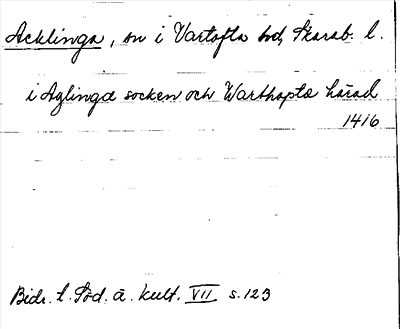 Acklinga, sn i Vartofta hd, Skarab. l.
i Aglinga socken och Warthapta härad
1416
Bidr. t. Söd. å. kult. VII s. 123